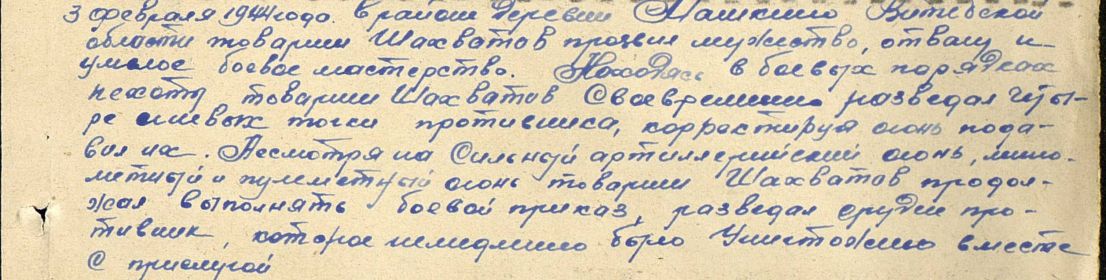 3 февраля 1944 года. в районе деревни Машкино Витебской
области товарищ Шахватов проявил мужество, отвагу и
умелое боевое мастерство. Находясь в боевых порядках
пехоты товарищ Шахватов своевременно разведал четы-
ре огневых точки противника, корректируя огонь пода-
вил их. Несмотря на сильный артиллерийский огонь, мино-
метный и пулеметный огонь товарищ Шахватов продол-
жая выполнять боевой приказ, разведал орудие про-
тивник, которое немедленно было уничтожено вместе
с прислугой